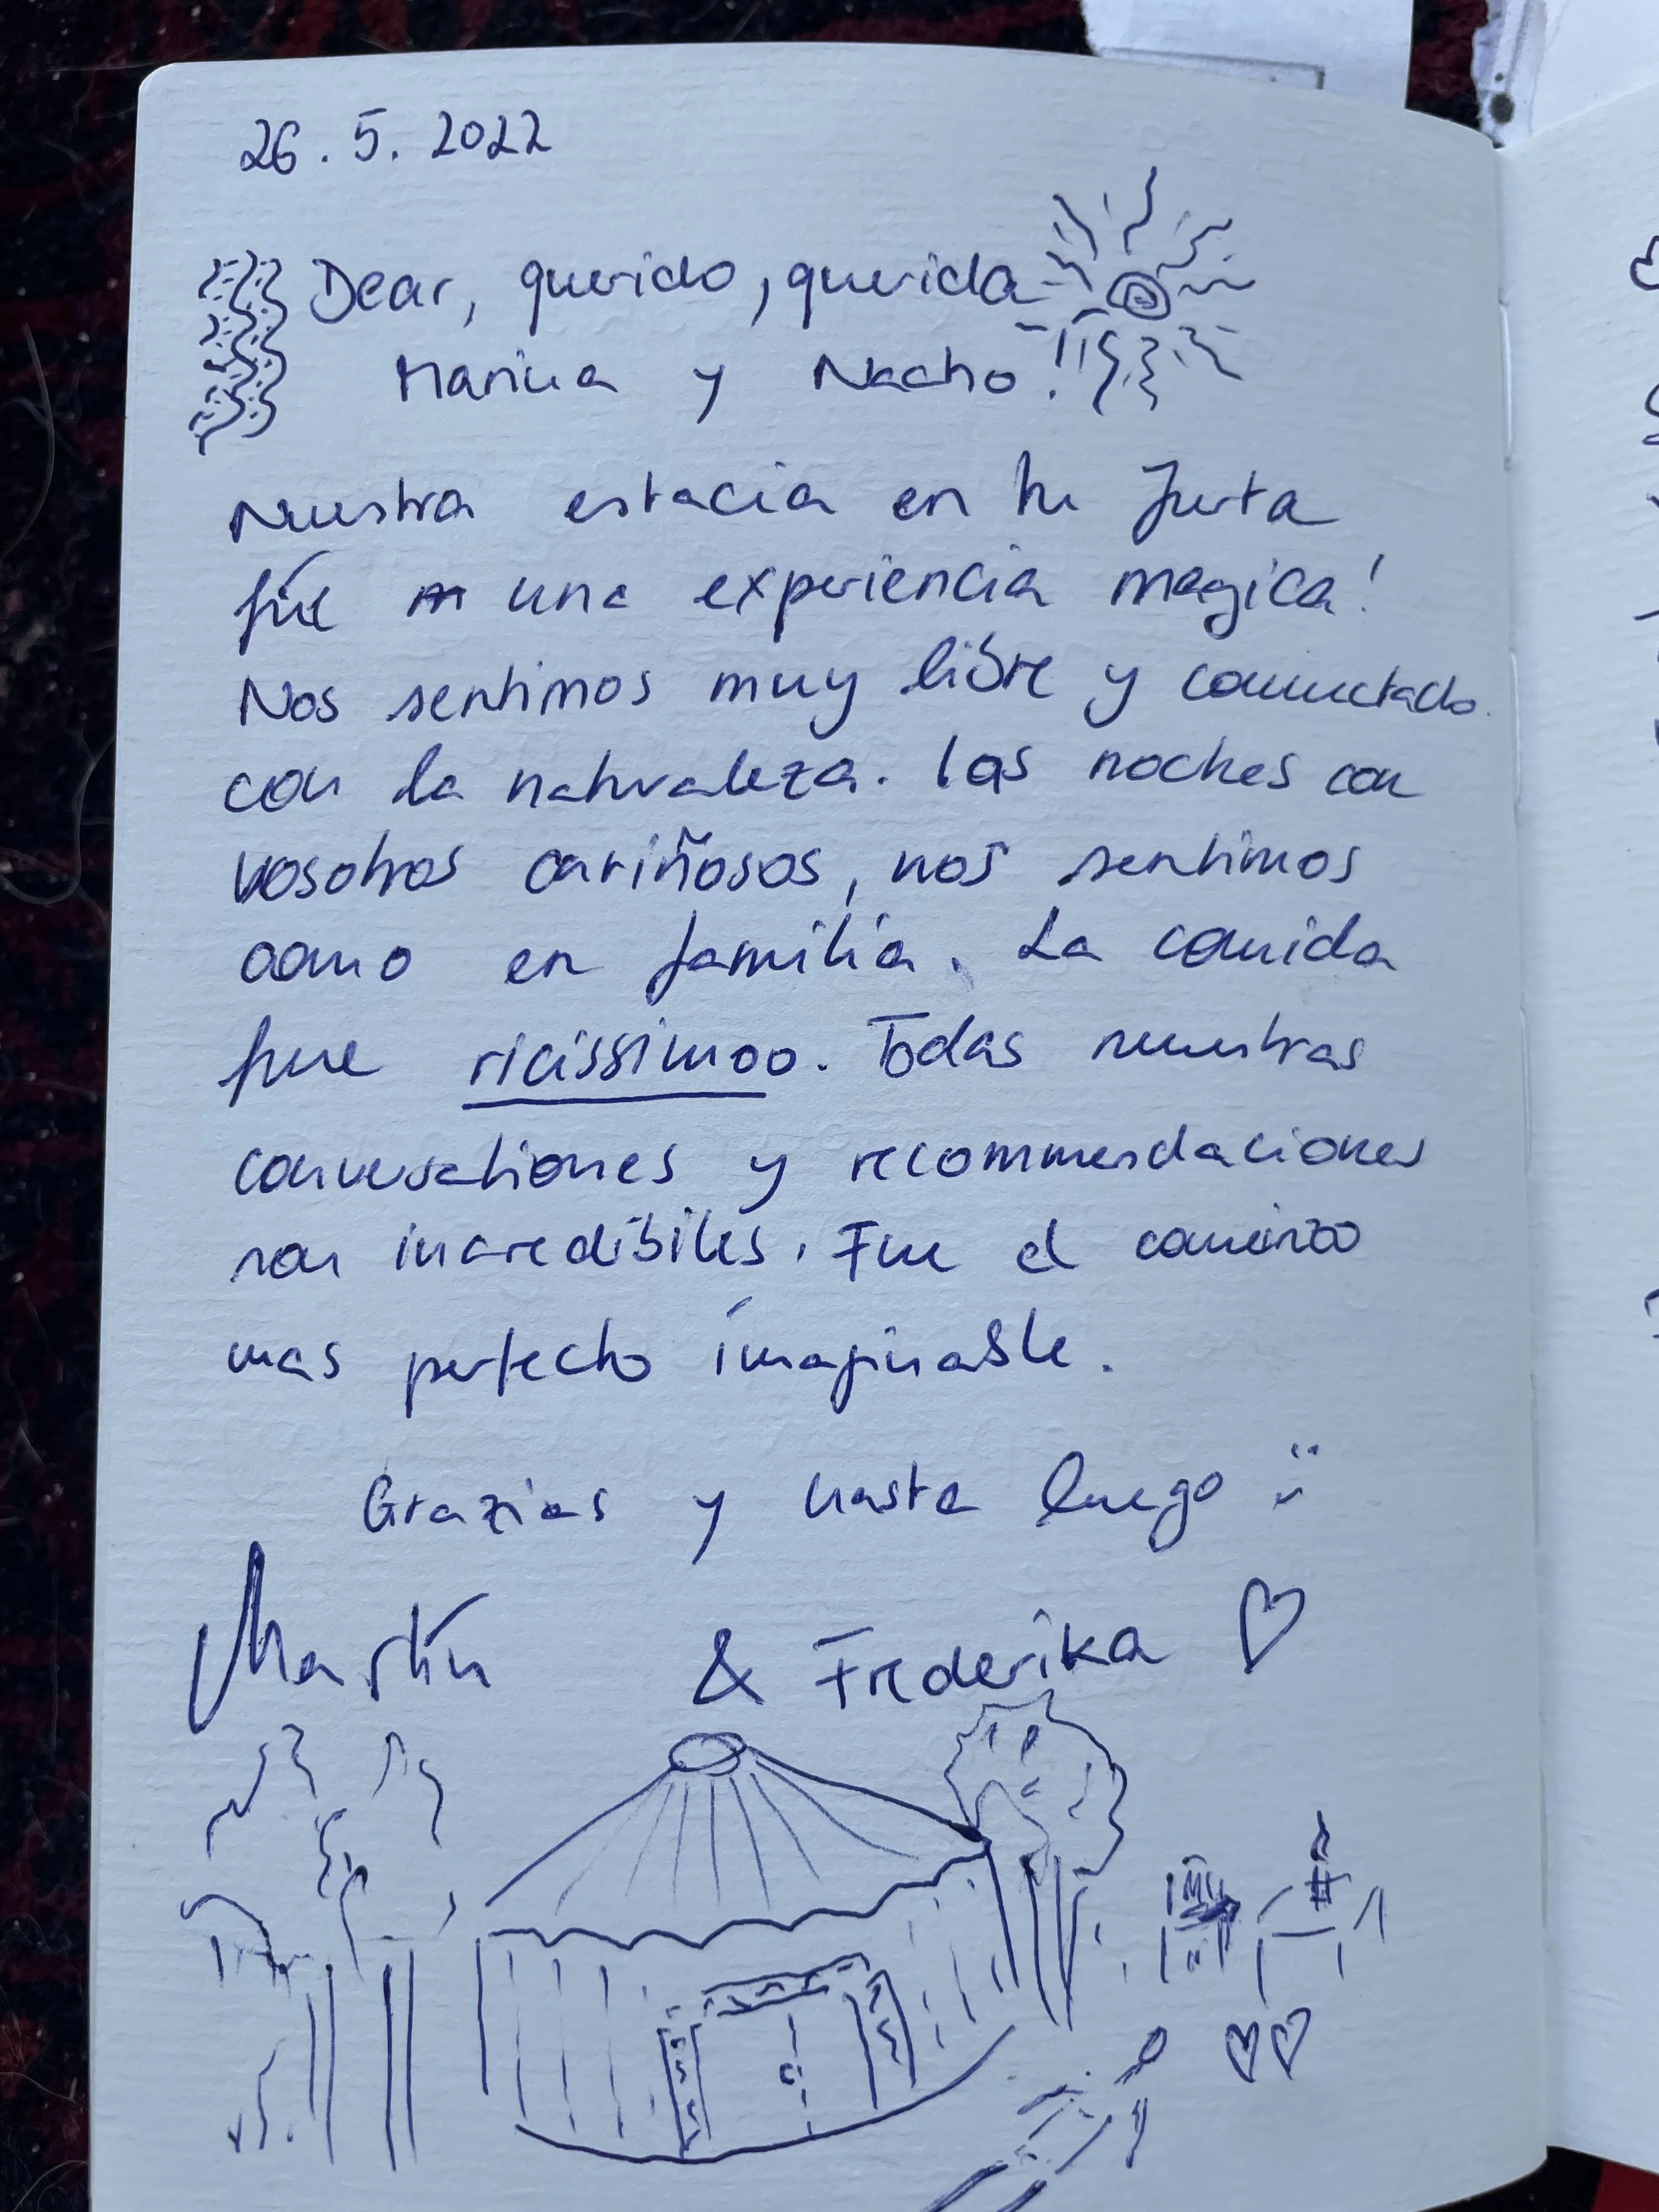 26. 5. 2022
Dear, querido, querida
Marica y Nacho!
Nuestra estacia en tu Jurta
fúe una experiencia magica!
Nos sentimos muy libre y connectado
con la naturaleza. las noches con
vosotros cariñosos, nos sentimos
como en familia. La comida
fue ricissimoo. Todas nuestras
conversationes y recommendaciones
son incredibiles. Fue el comienzo
mas perfecto imaginable.
Grazias y hasta luego :)
Martin
& Frederika ♡